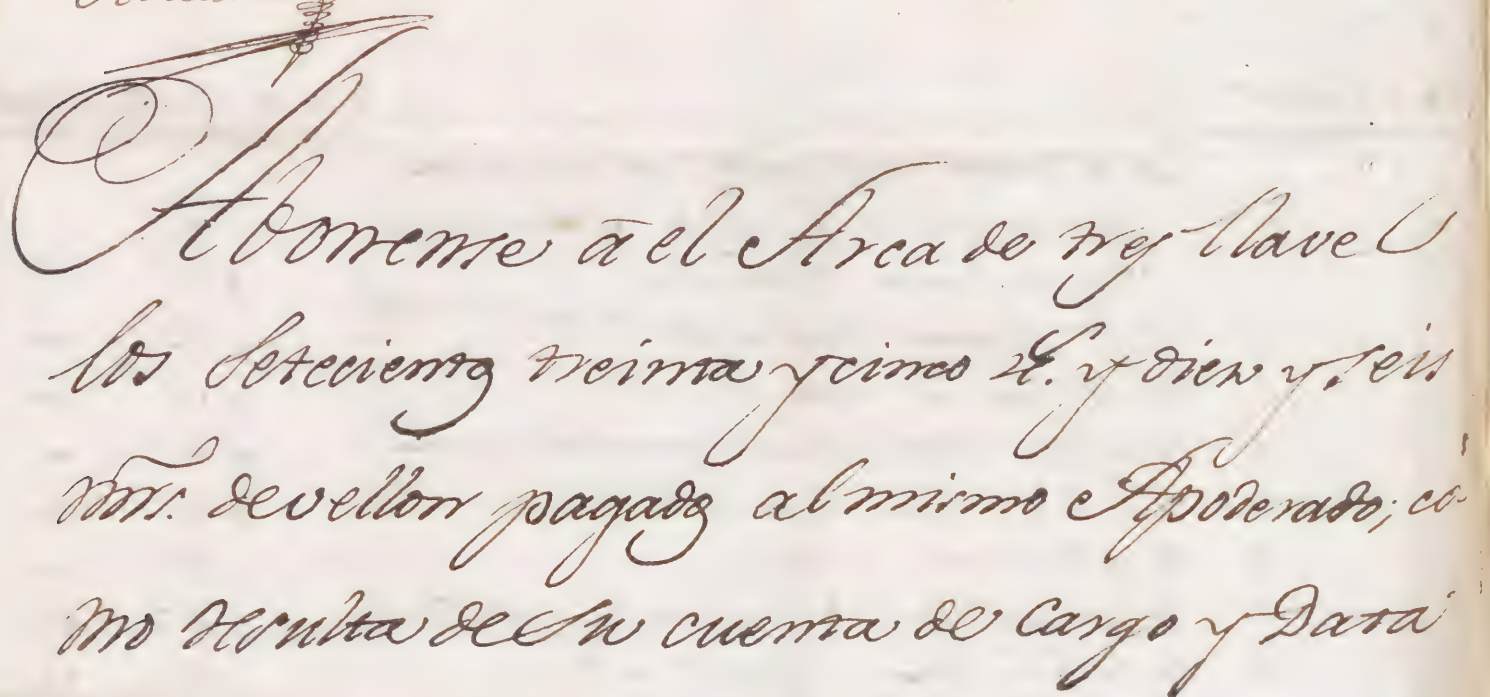 Abonense â el Arca de tres llaves
los Setecientos treinta y cinco rs. y diez y seis
mrs. de vellon pagados al mismo Apoderado; co-
mo resulta de Su cuenta de Cargo y Data